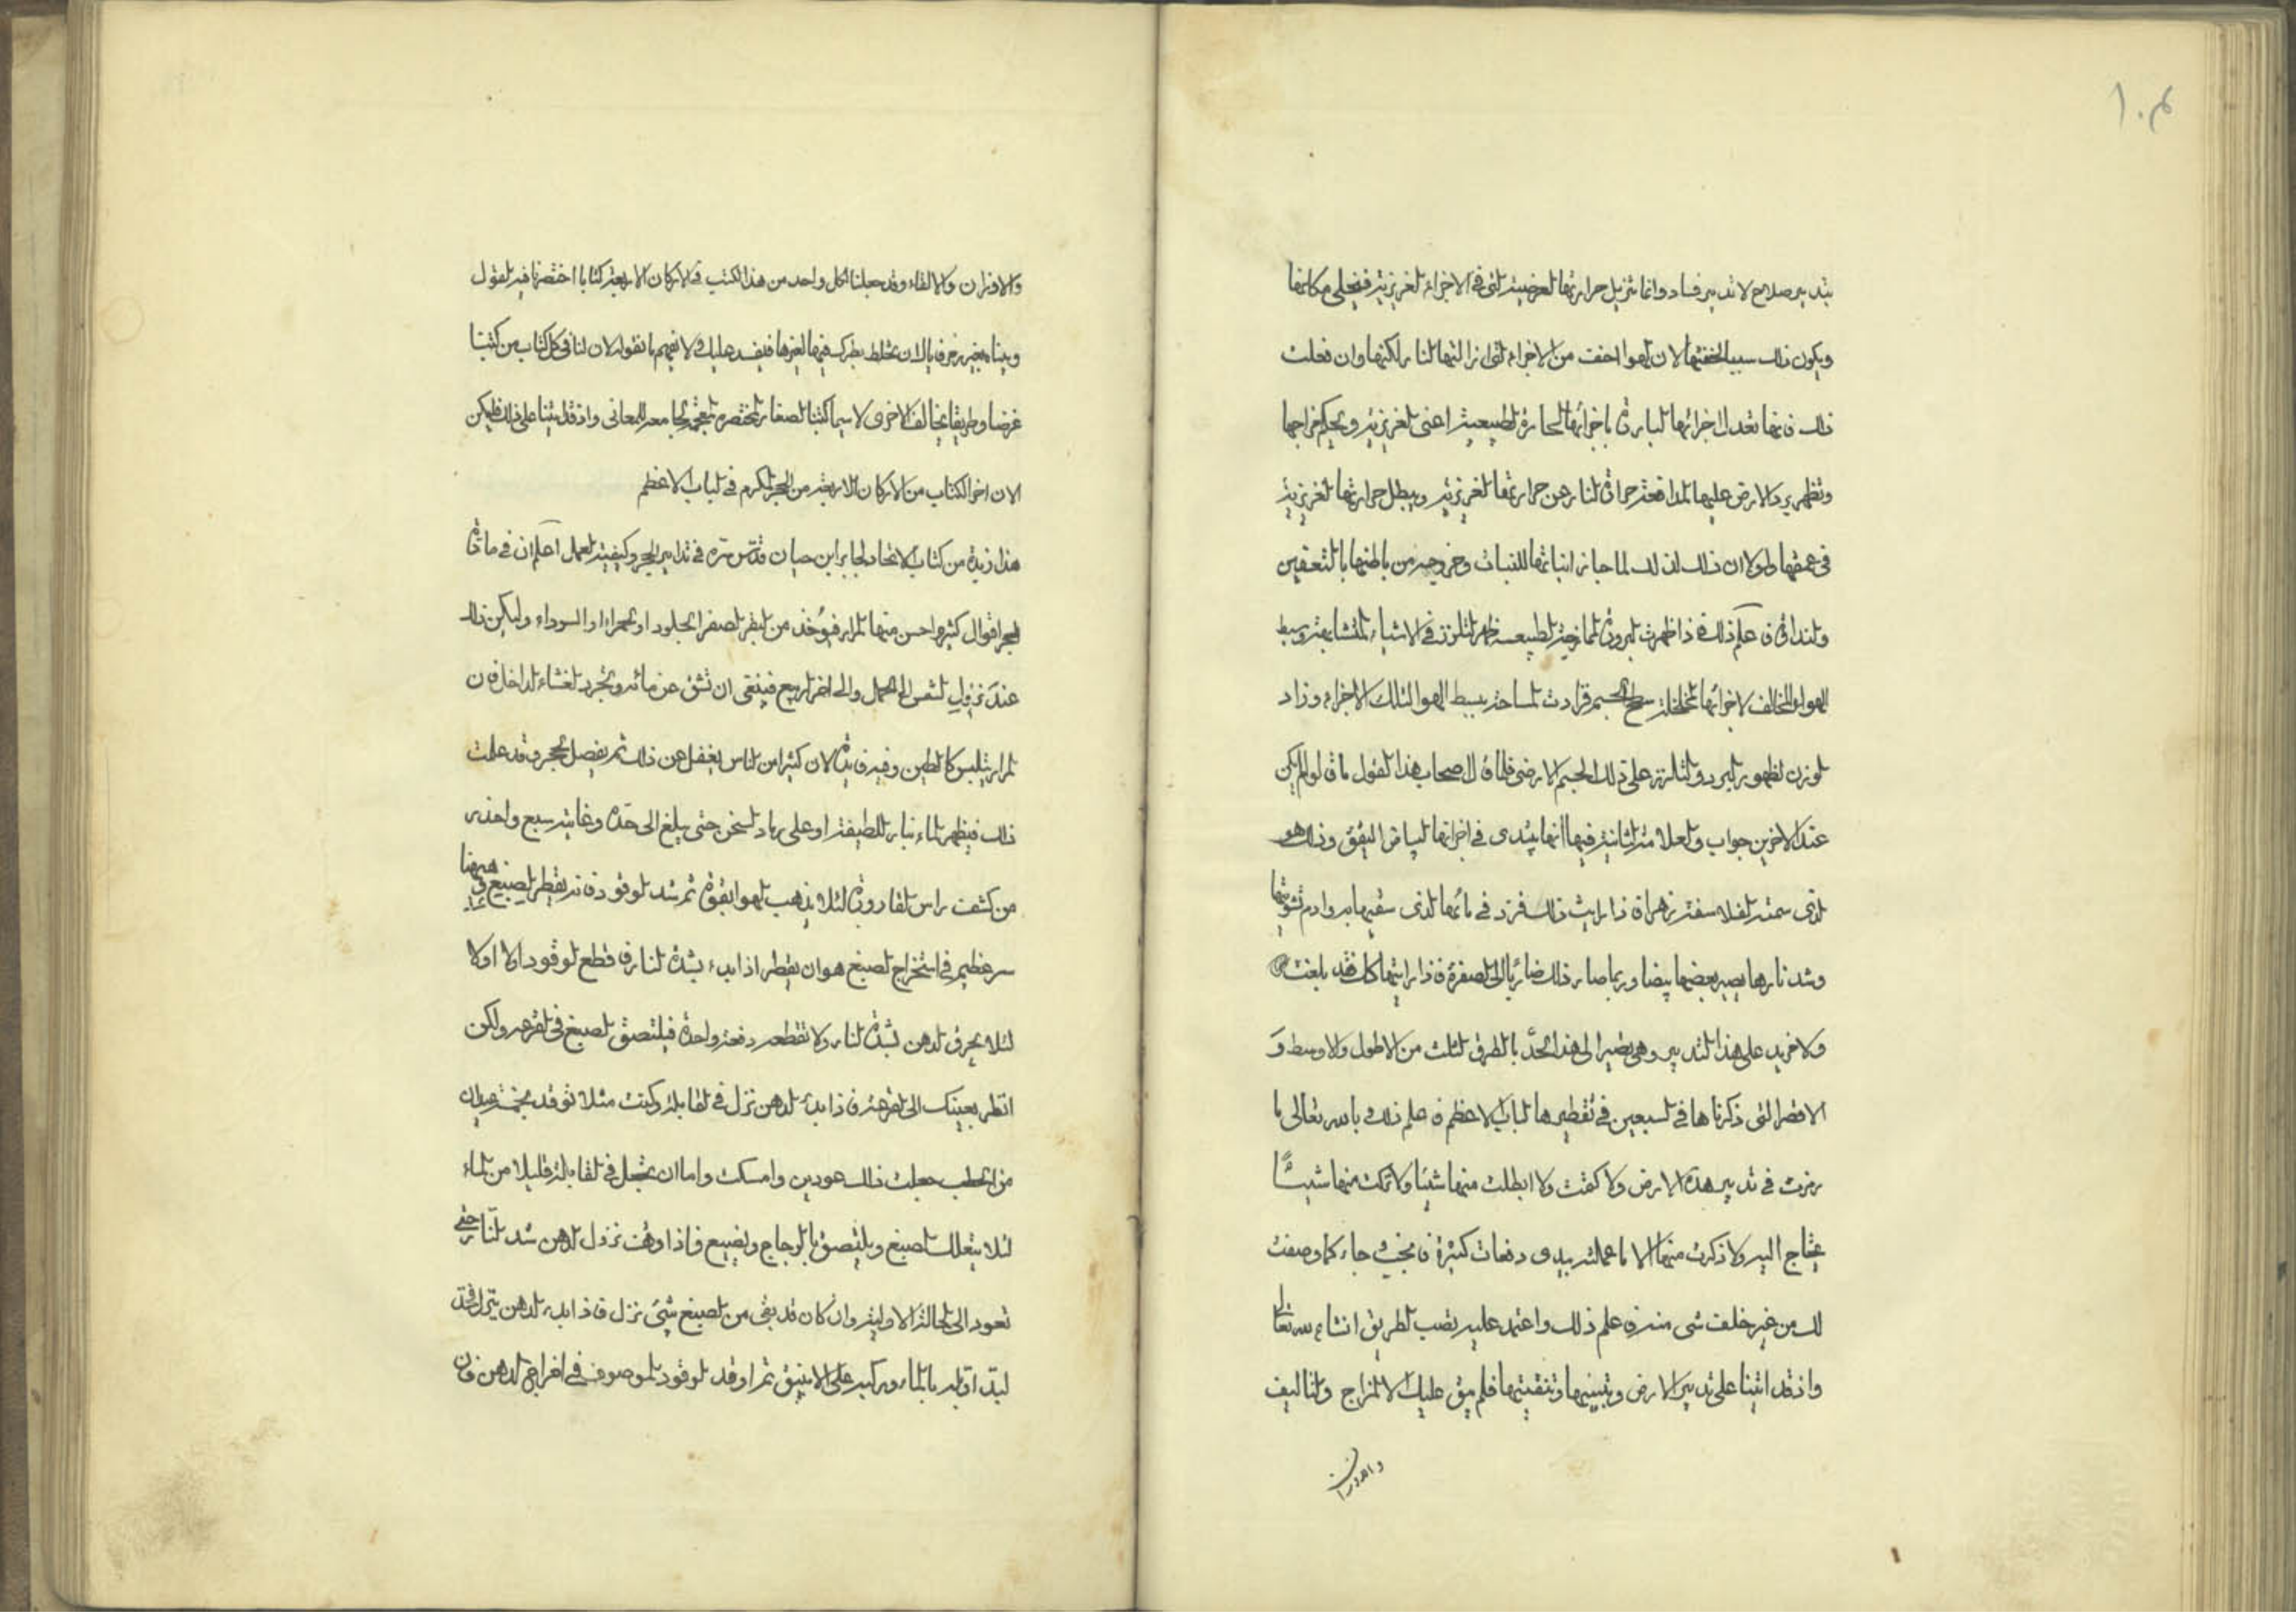 ١٠٤
بتدبير صلاح لا تدبير فساد وانما تزيل حرارتها العرضية التى فى الاجزاء الغريزية فيخلى مكانها
ويكون ذلك سببا لخفتها لان الهوا اخف من الاجزاء التى ازالتها النار لكنها وان فعلت
ذلك فانها تعدل اجزائها الباردة باجزائها الحارة الطبيعية اعنى الغريزية ويحكم مزاجها
وتظهر برد الارض عليها لمدافعة حراقة النار عن حرارتها الغريزية ويبطل حرارتها الغريزية
فى عمقها ولولا ان ذلك كذلك لما جاز انباتها للنبات وخروجه من باطنها بالتعفين
والنداوة فاعلم ذلك فاذا ظهرت البرودة لممازجة الطبيعة ظهر التلزز فى الاشياء المتشابهة وبسط
الهواء المخالف لاجزائها سطح الجسم فزادت لمساحة بسيط الهوا لتلك الاجزاء وزاد
الوزن لظهور البرد والتلزز على ذلك الجسم الارضى فلما قال اصحاب هذا القول ما قالوا لم يكن
عند الاخرين جواب والعلامة الثانية فيها انها يبتدى فى اجزائها البياض اليقق وذلك هو
الذى سمته الفلاسفة زهرا فاذا رايت ذلك فزد فى مائها الذى سقيها به وادم تشويتها
وشد نارها يصير بعضها بيضا وربما صار ذلك ضاربا الى الصفرة فاذا رايتها كذلك فقد بلغت
ولا مزيد على هذا التدبير وهى تصير الى هذا الحد بالطرق الثلث من الاطول والاوسط و
الاقصر التى ذكرناها فى السبعين فى تقطيرها الباب الاعظم فاعلم ذلك وبالله تعالى ما
رمزت فى تدبير هذه الارض ولا كنيت ولا ابطلت منها شيئا ولا تركت منها شيئًا
يحتاج اليه ولا ذكرت منها الا ما عملته بيدى دفعات كثيرة فانجح وجاء كما وصفت
لك من غير خلف شى منه فاعلم ذلك واعتمد عليه تصب الطريق انشاء الله تعالى
واذ قد اتينا على تدبير الارض وتبييضها وتنقيتها فلم يبق عليك الا المزاج والتاليف
والاقتران
والاقتران والالقاء وقد جعلنا لكل واحد من هذا الكتب فى الاركان الاربعة كتابا اختصرنا فيه القول
وبيناه بغير حرف بالان يختلط بطرك فيها لغيرها فيفسد عليك ولا تفهم ما نقول لان لنا فى كل كتاب من كتبنا
غرضا وطريقا يخالف الاخرى لا سيما كتبنا الصغار المختصرة الجامعة للمعانى واذ قد اتينا على ذلك فليكن
الان اخر الكتاب من الاركان الاربعة من الحجر المكرم فى الباب الاعظم
هذا زبدة من كتاب الاتحاد لجابر ابن حيان قدس سره فى تدابير الحجر وكيفية العمل اعلم ان فى مادة
الحجر اقوال كثيرة احسن منها المرار فيؤخذ من البقر الصفر الجلود او الحمراء او السوداء وليكن ذلك
عند نزول الشمس الى الحمل والى اخر الربيع فينبغى ان تشق عن مائه وتجرد الغشاء الداخل فان
المرار يتلبس كالطين وفيه فائدة لان كثيرا من الناس يغفل عن ذلك ثم يفصل الحجر وقد علمت
ذلك فيظهر الماء بنار لطيفة او على رماد السخن حتى يبلغ الى حده وغايته سبع واحذر
من كشف راس القارورة لئلا يذهب الهوا بقوة ثم شد الوقود فانه يقطر الصبغ وههنا
سر عظيم فى استخراج الصبغ هو ان يقطر اذا بدء بشدة النار فاقطع الوقود اولا اولا
لئلا يحرق الدهن بشدة النار ولا تقطعه دفعة واحدة فيلتصق الصبغ فى القرعة ولكن
انظر بعينك الى القرعة فاذا بدء الدهن نزل فى القابلة وكنت مثلا توقد بخمسة عيدان
من الحطب جعلت ذلك عودين وامسكت واما ان يجعل فى القابلة قليلا من الماء
لئلا يتعلك الصبغ ويلتصق بالزجاج ويضيع فاذا وقف نزول الدهن شد النار حتى
تعود الى الحالة الاولية وان كان قد بقى من الصبغ شئ نزل فاذا بدء الدهن ينزل فقد
القابلة بالماء وركبه على الانبيق ثم اوقد الوقود الموصوف فى اخراج الدهن فان